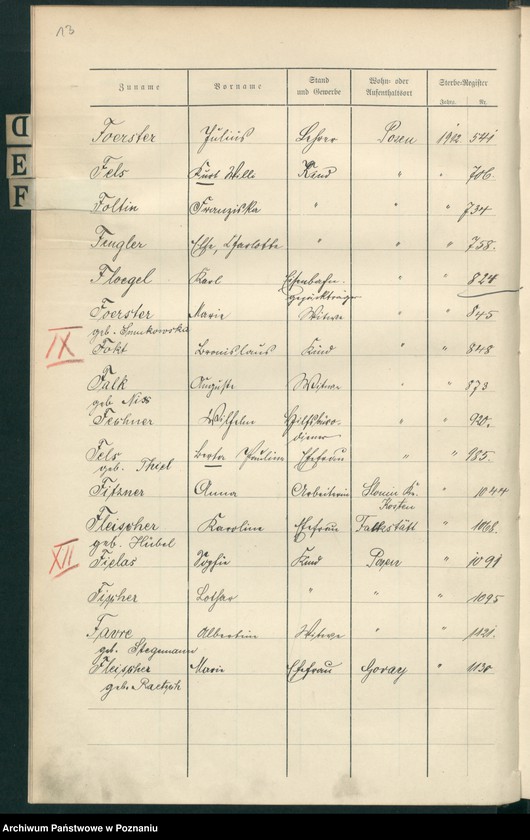 13
Zuname Vorname Stand und Gewerbe Wohn- oder Aufenthaltsort Sterbe-Register
Jahr. Nr.
D
E
F
Foerster Julius Lehrer Posen 1902 541
Fels Kurt Willi Kind " " 706.
Foltin Franziska " " " 734
Fengler Else, Charlotte " " " 758.
Floegel Karl Eisenbahn- " " 824
gepäckträger
Foerster Marie Witwe " " 845
geb.
IX
Fokt Bronislaus Kind " " 848
Falk Auguste Witwe " " 873
geb. Niss
Fechner Wilhelm Hilfsbüro- " " 920.
diener
Fels Berta Pauline Ehefrau " " 985.
geb. Thiel
Fitzner Anna Arbeiterin Kr. " 1044
Kosten
Fleischer Karoline Ehefrau Falkstätt " 1068.
geb. Hübel
XII
Fiplas Sophie Kind Posen " 1091
Fischer Lothar " " " 1095
Favre Albertine Witwe " " 1121.
geb. Stegemann
Fleischer Marie Ehefrau Goray " 1130
geb. Raetsch
Archiwum Państwowe w Poznaniu